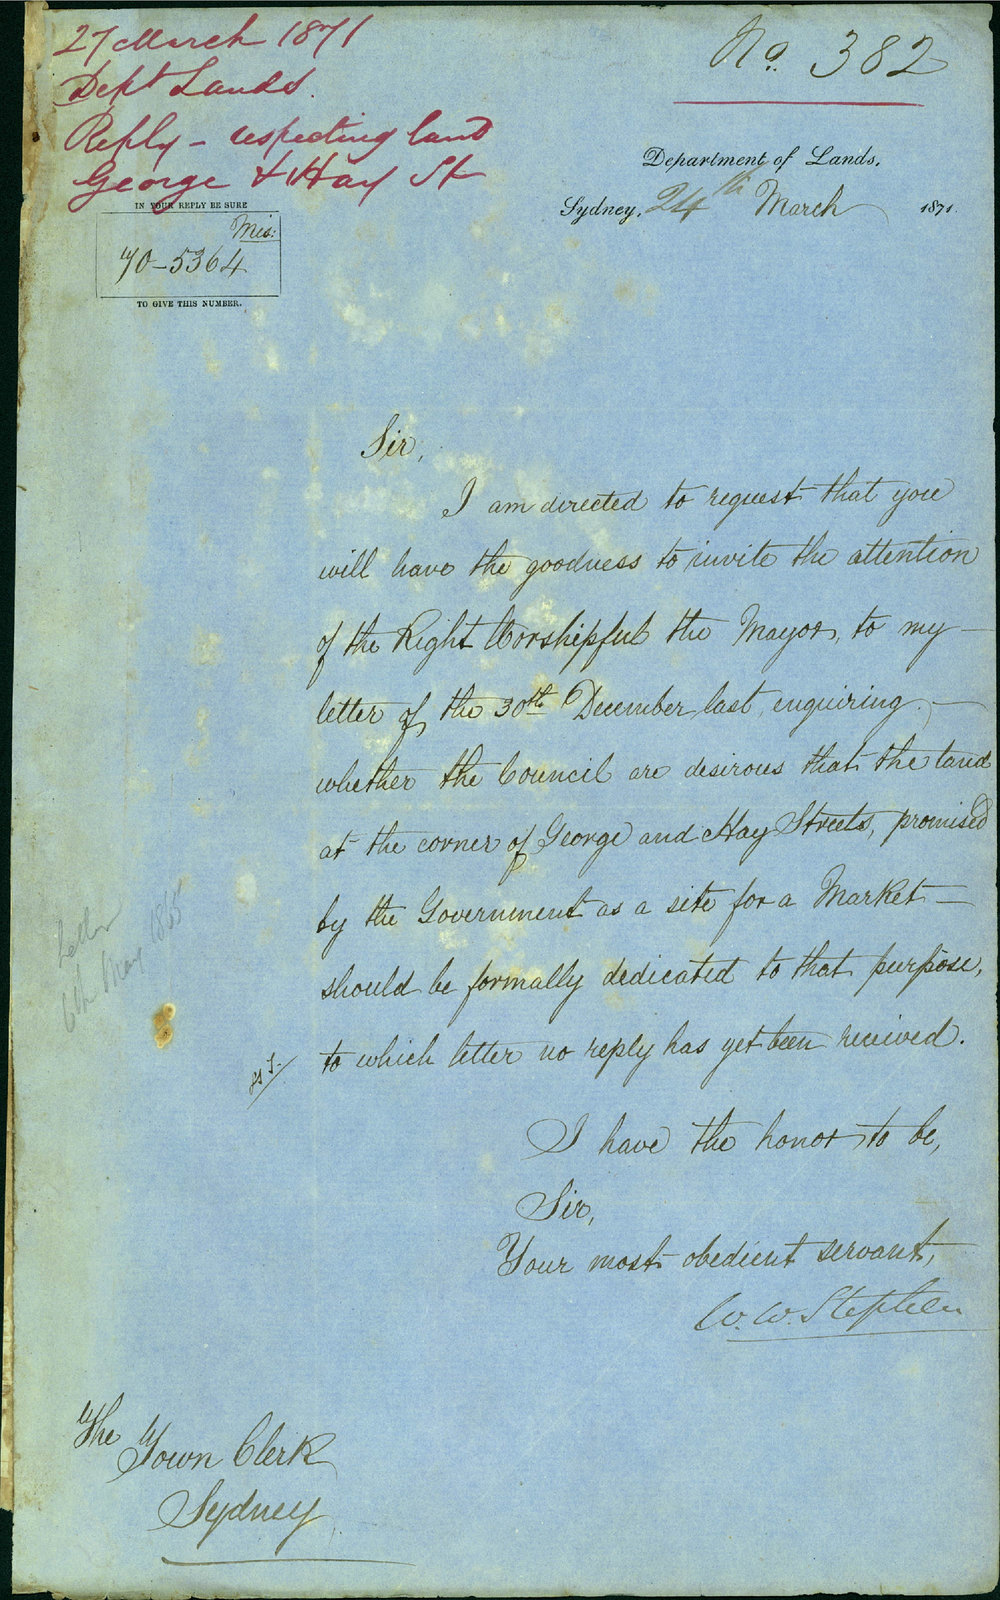 27 March 1871
Dept Lands.
Reply - respecting land
George & Hay St
No. 382
Department of Lands,
Sydney, 24th March 1871.
IN YOUR REPLY BE SURE
Mis:
70-5364
TO GIVE THIS NUMBER.
Sir,
I am directed to request that you
will have the goodness to invite the attention
of the Right Worshipful the Mayor, to my
letter of the 30th December last, enquiring
whether the Council are desirous that the land
at the corner of George and Hay Streets, promised
by the Government as a site for a Market
should be formally dedicated to that purpose,
to which letter no reply has yet been received.
Letter
6th May 1865
I have the honor to be,
Sir,
Your most obedient servant,
W. W. Stephen
The Town Clerk
Sydney